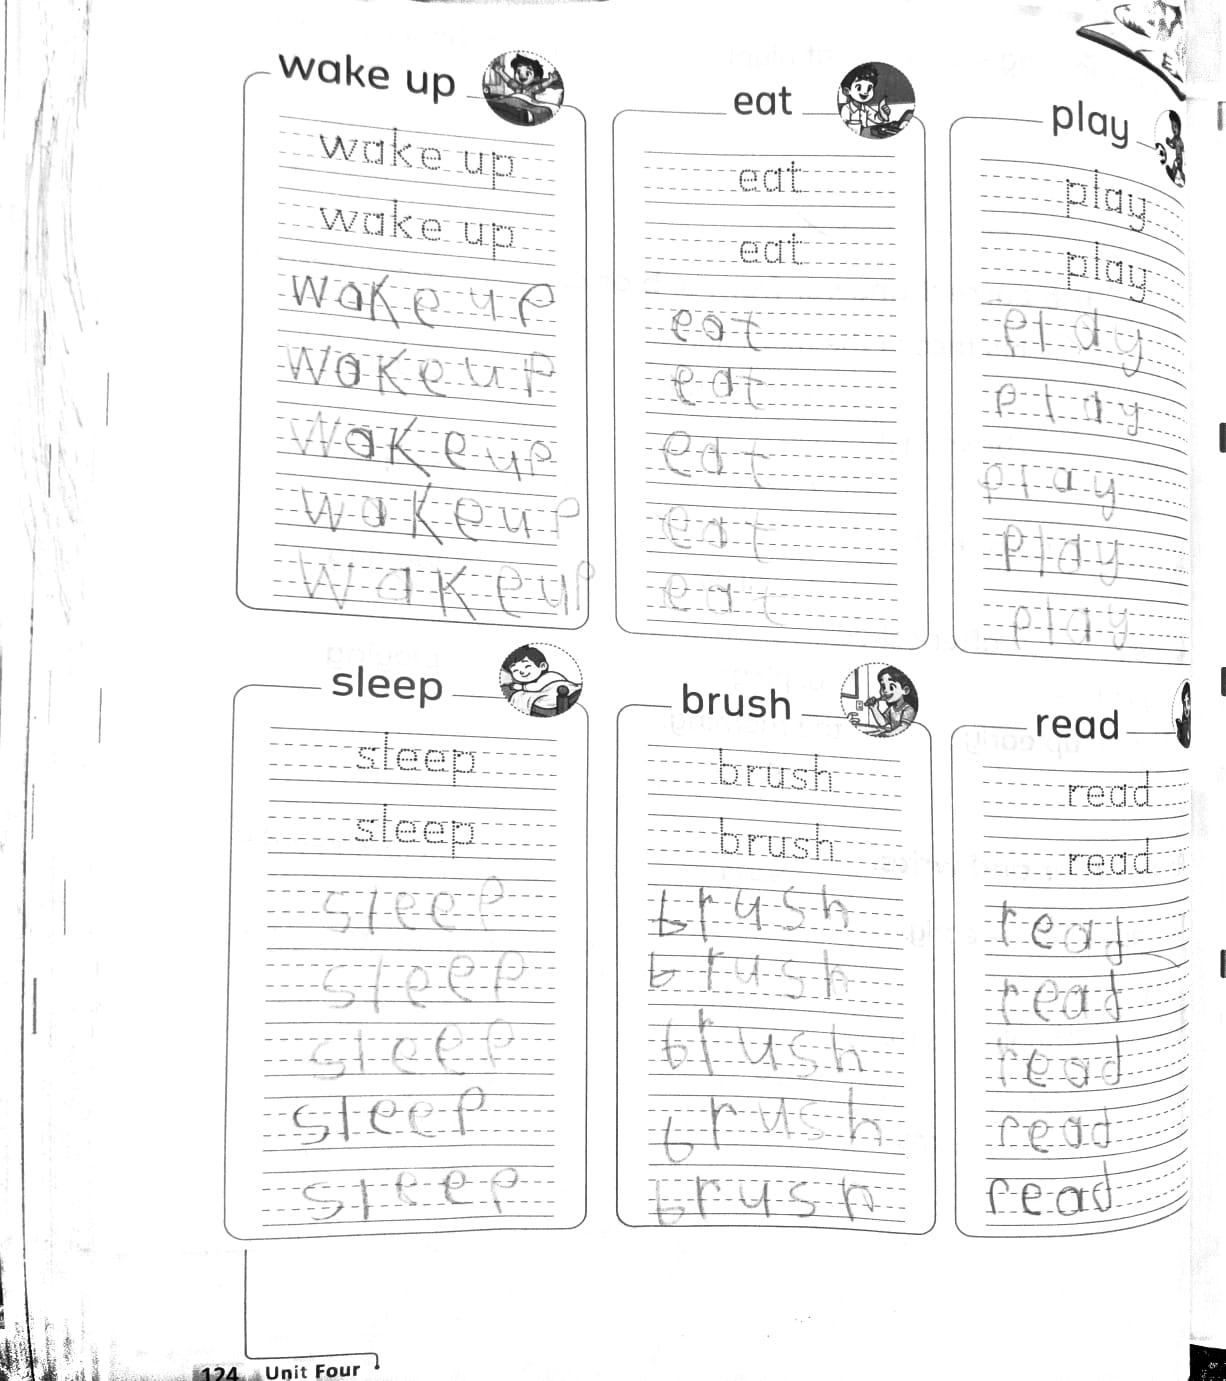 wake up
wake up
wake up
wake up
wake up
wake up
wake up
wake up
eat
eat
eat
eat
eat
eat
eat
eat
play
play
play
play
play
play
play
play
sleep
sleep
sleep
sleep
sleep
sleep
sleep
sleep
brush
brush
brush
brush
brush
brush
brush
brush
read
read
read
read
read
read
read
read
124 Unit Four